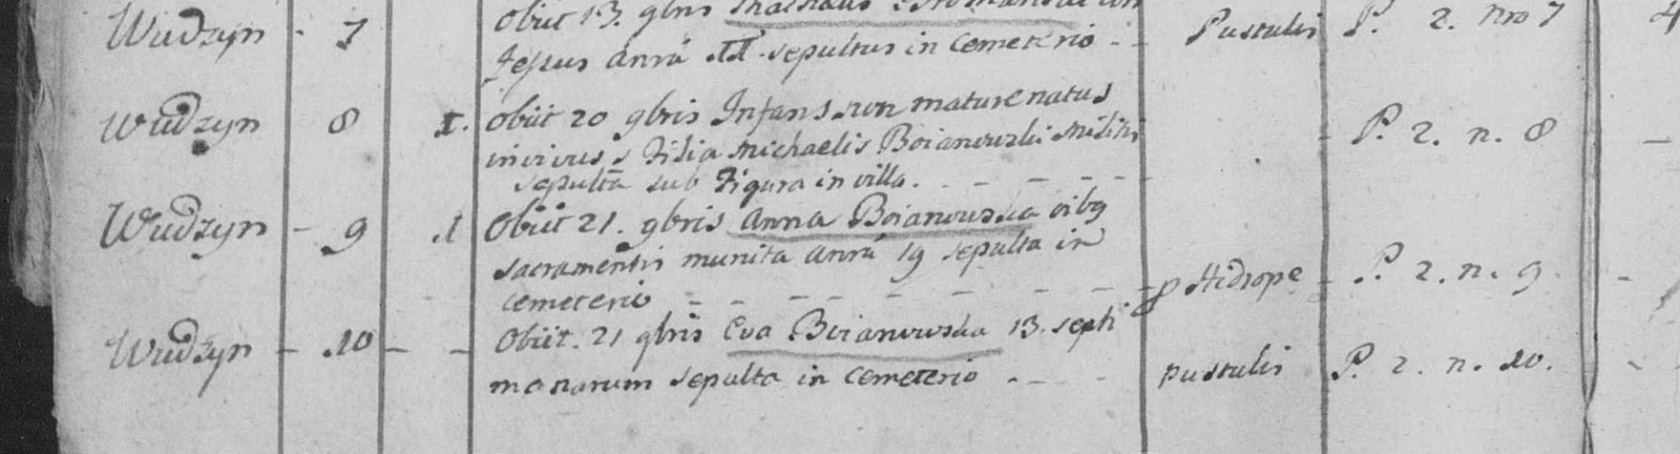 Wudzyn - 7 Obiit 13. 9bris
annū sepultus in Cemeterio - - Pustulis P. 2. Nro 7 4
Wudzyn - 8 I. Obiit 20 9bris Infans non mature natus
Filia Michaelis Boianowski Militis - P. 2. n. 8 -
sepulta sub Figura in villa. - - - - - -
Wudzyn - 9 .1 Obiit 21. 9bris Anna Boianowska oibg
sacramentis munita annū 19 sepulta in
cemeterio - - - - - - - - Hidrope - P. 2. n. 9. -
Wudzyn - 10 - - Obiit. 21 9bris Eva Boianowska 13. septi
manarum sepulta in cemeterio - - - pustulis P. 2. n. 10.